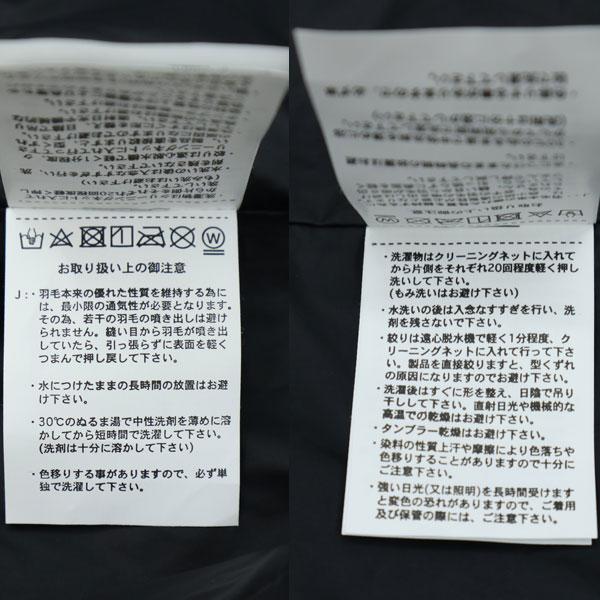 お取り扱い上の御注意
J: ・羽毛本来の優れた性質を維持する為に
は、最小限の通気性が必要となります。
その為、若干の羽毛の噴き出しは避け
られません。縫い目から羽毛が噴き出
していたら、引っ張らずに表面を軽く
つまんで押し戻して下さい。
・水につけたままの長時間の放置はお避
け下さい。
・30℃のぬるま湯で中性洗剤を薄めに溶
かしてから短時間で洗濯して下さい。
(洗剤は十分に溶かして下さい)
・色移りする事がありますので、必ず単
独で洗濯して下さい。
・洗濯物はクリーニングネットに入れて
から片側をそれぞれ20回程度軽く押し
洗いして下さい。
(もみ洗いはお避け下さい)
・水洗いの後は入念なすすぎを行い、洗
剤を残さないで下さい。
・絞りは遠心脱水機で軽く1分程度、ク
リーニングネットに入れて行って下さ
い。製品を直接絞りますと、型くずれ
の原因になりますのでお避け下さい。
・洗濯後はすぐに形を整え、日陰で吊り
干しして下さい。直射日光や機械的な
高温での乾燥はお避け下さい。
・タンブラー乾燥はお避け下さい。
・染料の性質上汗や摩擦により色落ちや
色移りすることがありますので十分に
ご注意下さい。
・強い日光(又は照明)を長時間受けます
と変色の恐れがありますので、ご着用
及び保管の際には、ご注意下さい。